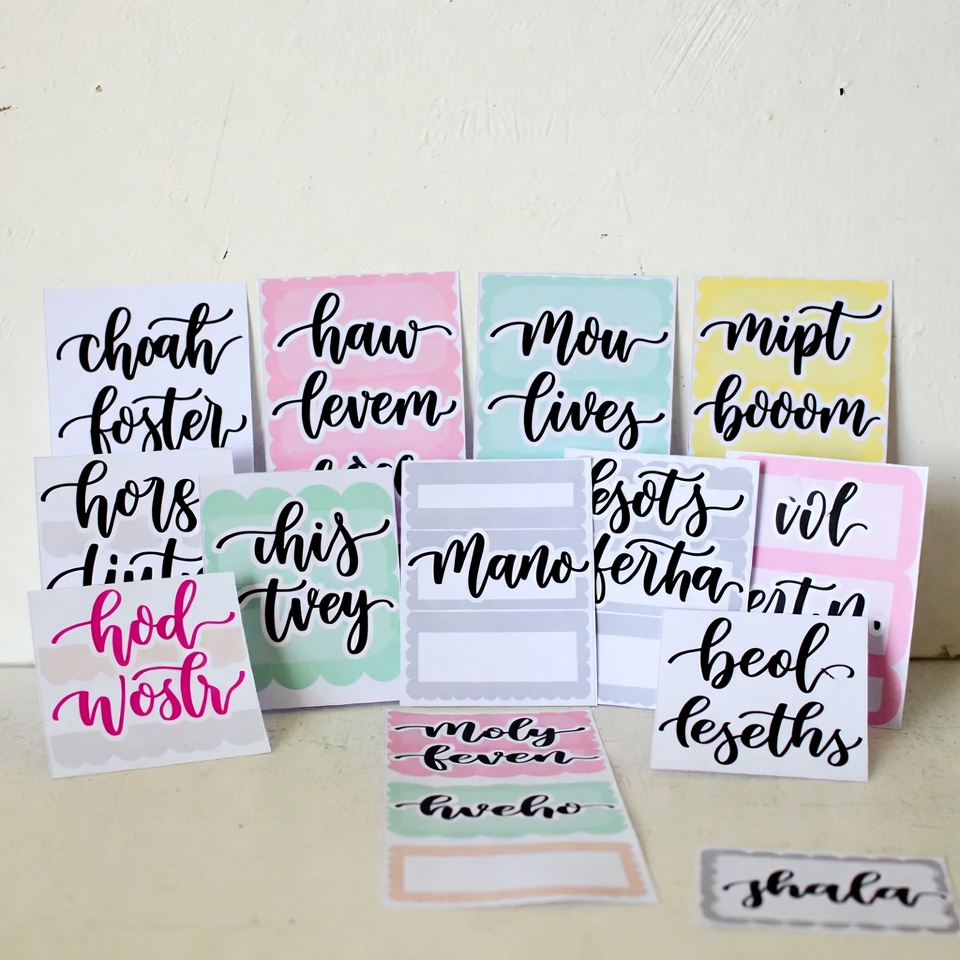 choah
foster
haw
levem
mou
lives
mipt
booom
hors
this
tvey
mano
esots
ferha
vol
hod
woslr
beol
leseths
moly
feven
hveho
shala